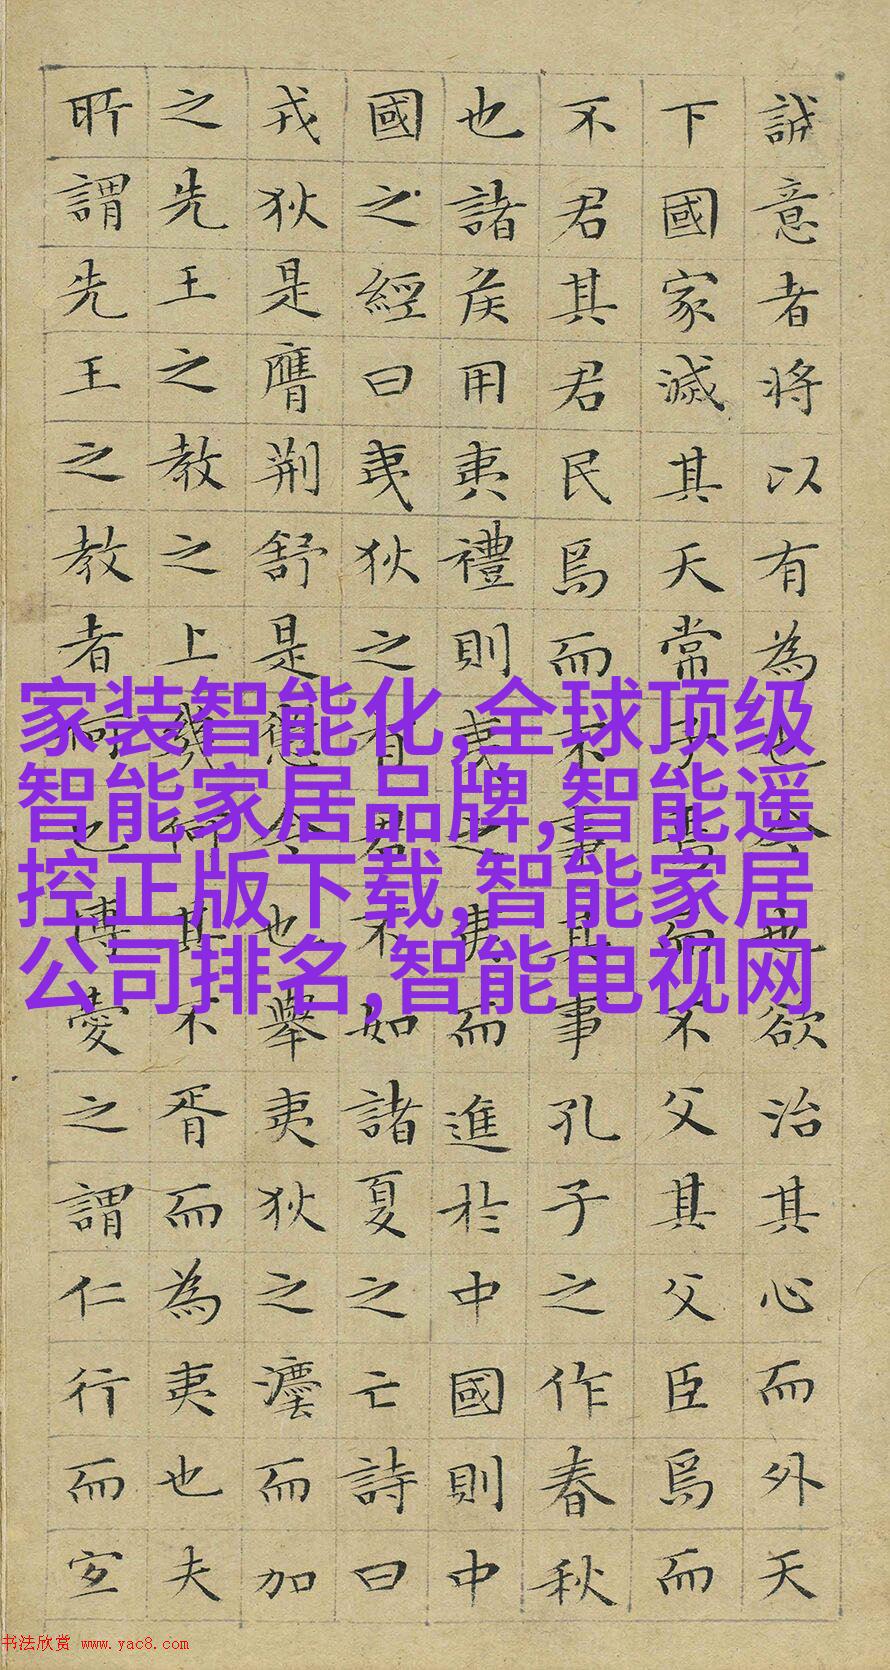 誠意者将以有為也今也欲治其心而外天
下國家滅其天常子焉而不父其父臣焉而
不君其君民焉而不事其事孔子之作春秋
也諸侯用夷禮則夷之夷而進於中國則中
國之經曰夷狄之有君不如諸夏之亡詩曰
戎狄是膺荆舒是懲今也舉夷狄之灋而加
之先王之教之上幾何其不胥而為夷也夫
所謂先王之教者何也博愛之謂仁行而宜
家装智能化,全球顶级
智能家居品牌,智能遥
控正版下载,智能家居
公司排名,智能电视网
书法欣赏 www.yac8.com